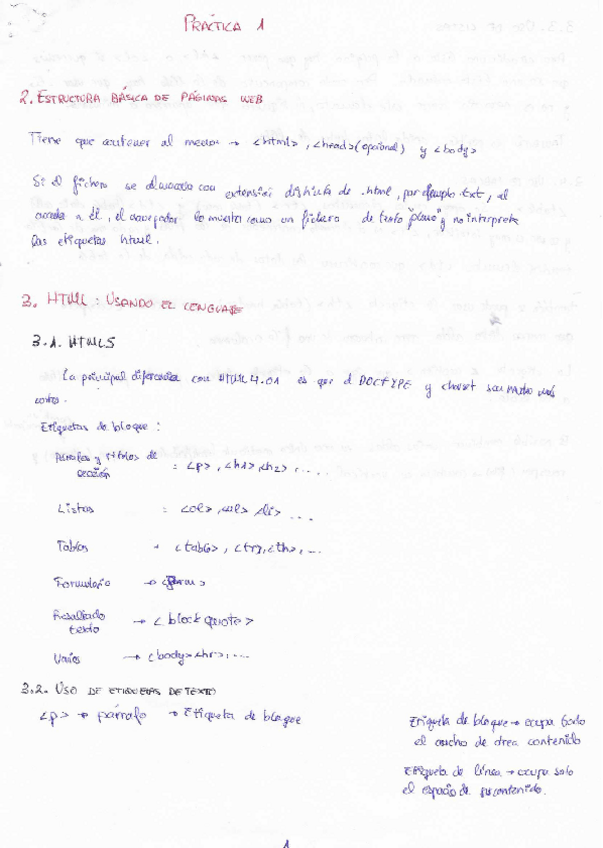 PRÁCTICA 1
2. ESTRUCTURA BÁSICA DE PÁGINAS WEB
Tiene que contener al menos → <html>, <head>(opcional) y <body>
Si el fichero se almacena con extensión distinta de .html, por ejemplo .txt, al
acceda a él, el navegador lo muestra como un fichero de texto "plano" y no interpreta
las etiquetas html.
3. HTML: USANDO EL LENGUAJE
3.1. HTML5
La principal diferencia con HTML 4.01 es que el DOCTYPE y charset son mucho más
cortos.
Etiquetas de bloque:
Párrafos y títulos de
sección : <p>, <h1>, <h2>, ....
Listas : <ol>, <ul> <li> ...
Tablas → <table>, <tr>, <th>, ...
Formulario → <form>
Resaltado
texto → <blockquote>
Varios → <body> <hr>, ...
3.2. USO DE ETIQUETAS DE TEXTO
<p> → párrafo → Etiqueta de bloque
Etiqueta de bloque → ocupa todo
el ancho de área contenido
Etiqueta de línea → ocupa solo
el espacio de su contenido.
1